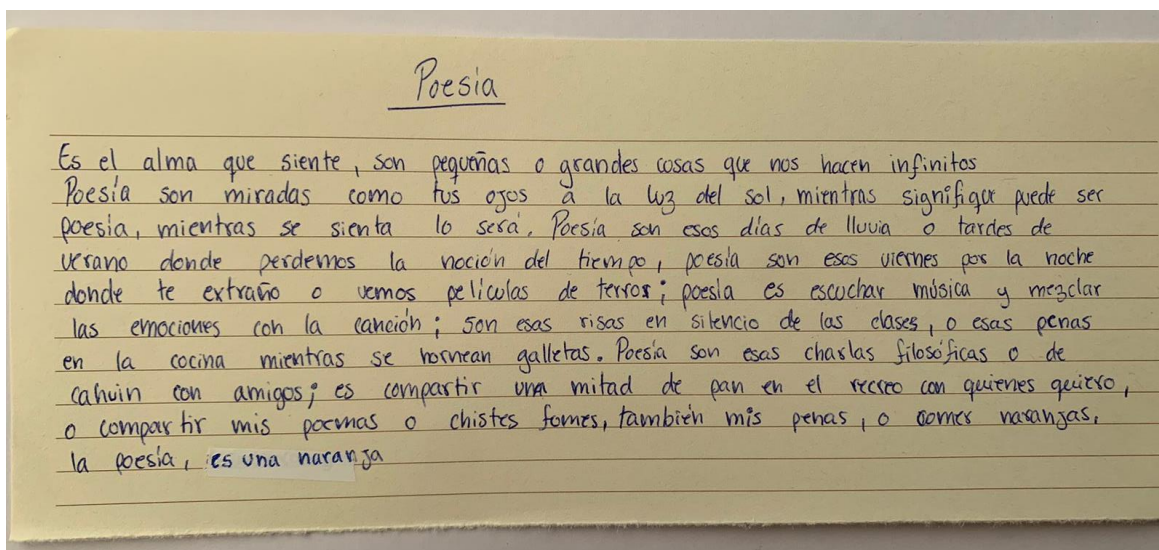 Poesía
Es el alma que siente, son pequeñas o grandes cosas que nos hacen infinitos
Poesía son miradas como tus ojos a la luz del sol, mientras signifique puede ser
poesía, mientras se sienta lo será. Poesía son esos días de lluvia o tardes de
verano donde perdemos la noción del tiempo, poesía son esos viernes por la noche
donde te extraño o vemos películas de terror; poesía es escuchar música y mezclar
las emociones con la canción; son esas risas en silencio de las clases, o esas penas
en la cocina mientras se hornean galletas. Poesía son esas charlas filosóficas o de
cahuin con amigos; es compartir una mitad de pan en el recreo con quienes quiero,
o compartir mis poemas o chistes fomes, también mis penas, o comer naranjas,
la poesía, es una naranja